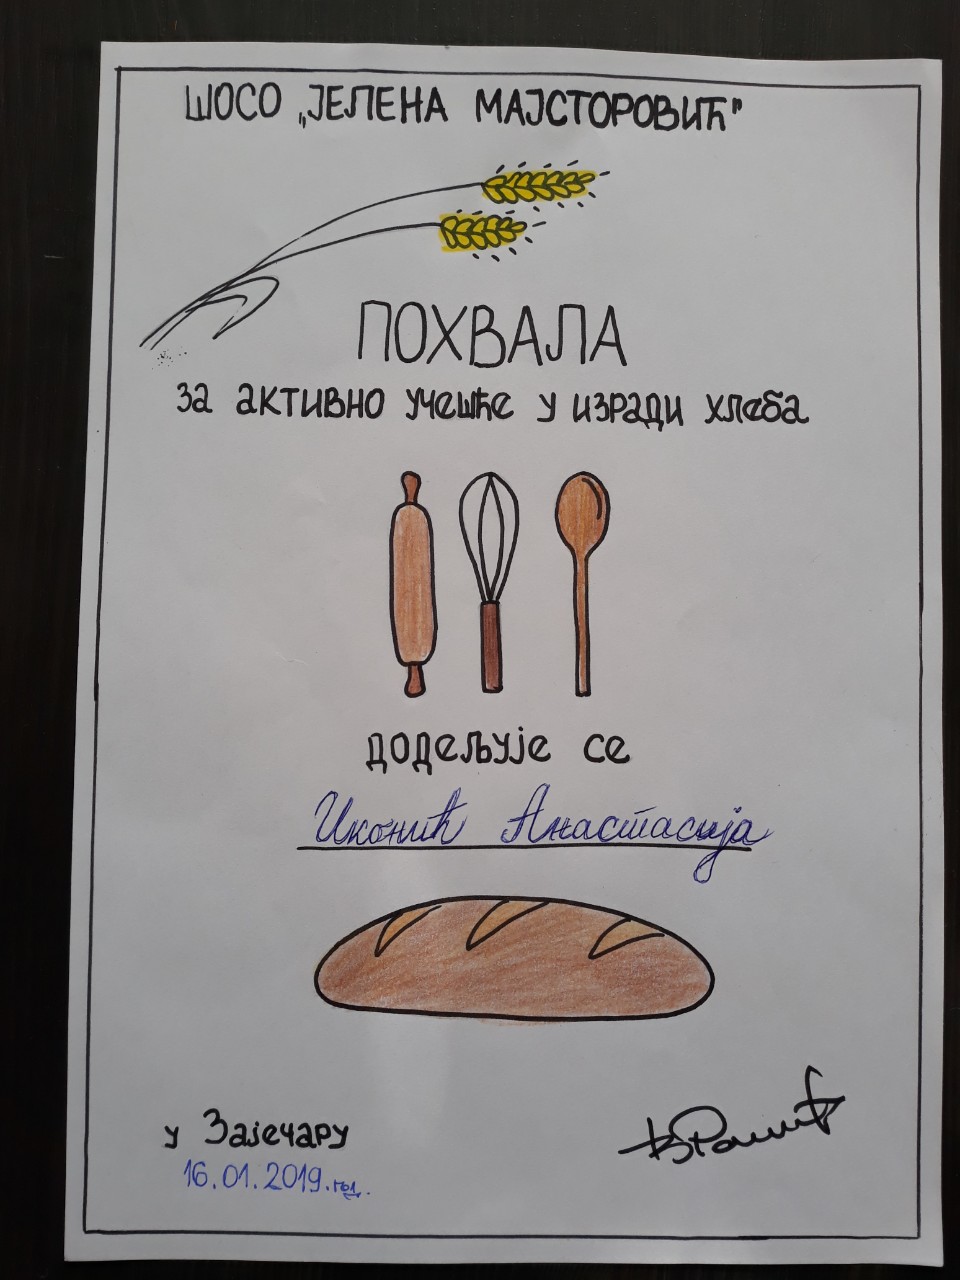 ШОСО „ЈЕЛЕНА МАЈСТОРОВИЋ"
ПОХВАЛА
за активно учешће у изради хлеба
додељује се
Иконић Анастасија
у Зајечару
16.01.2019.год.